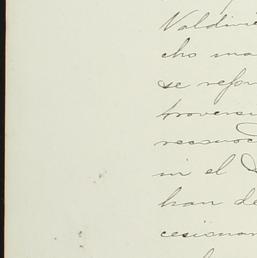 Valdivie
cho ma
se refor
trovers
reconoc
in el
han de
cesiona